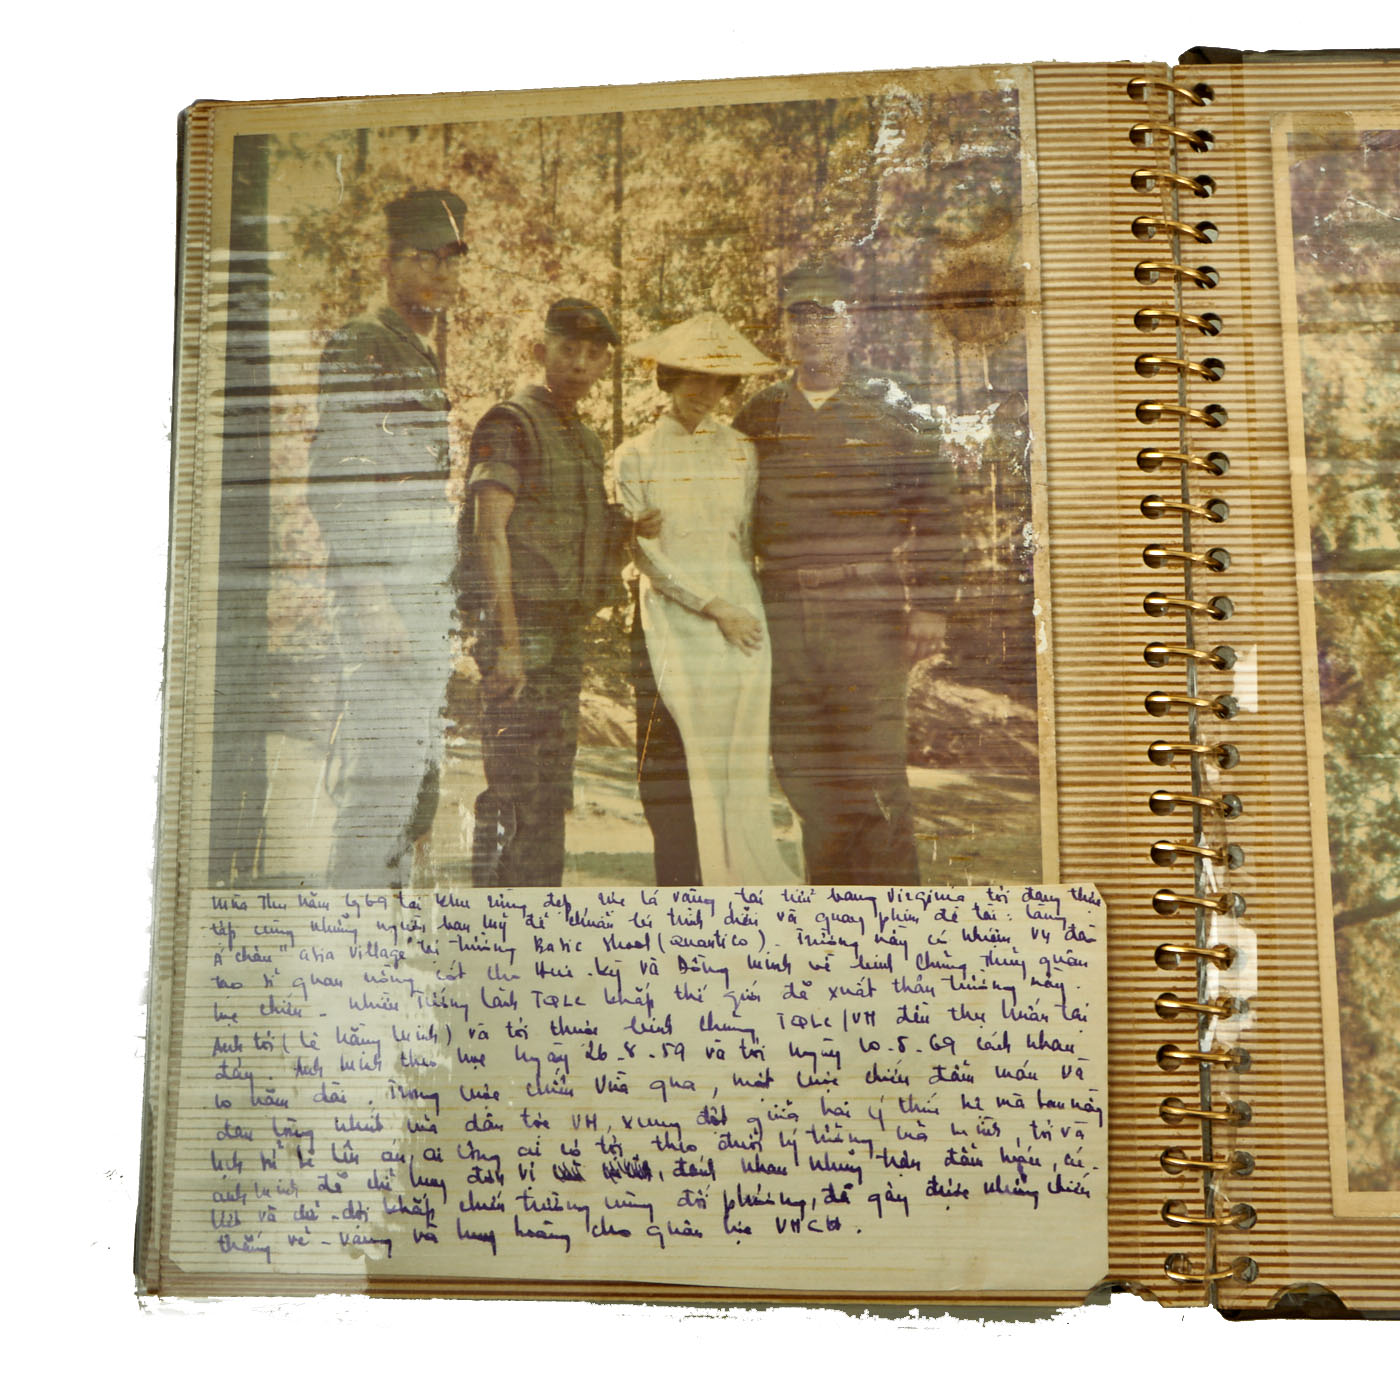 Mùa Thu năm 1969 tại khu rừng đẹp, rực lá vàng, tại tiểu bang Virginia, tôi đang thực
tập cùng những người bạn Mỹ để chuẩn bị trình diễn và quay phim đề tài: Làng
Á châu "asia Village" tại trường Basic shool (Quantico). Trường này có nhiệm vụ đào
tạo sĩ quan nòng cốt cho Hoa-Kỳ và Đồng Minh về binh chủng Thủy quân
lục chiến. Nhiều Tướng lãnh TQLC khắp thế giới đã xuất thân trường này.
Anh tôi (Lê Hằng Minh) và tôi thuộc binh chủng TQLC/VN đều thụ huấn tại
đây. Anh Minh theo học ngày 26-8-59 và tôi ngày 10-8-69 cách nhau
10 năm dài. Trong cuộc chiến vừa qua, một cuộc chiến đẫm máu và
đau lòng nhất của dân tộc VN, xung đột giữa hai ý thức hệ mà sau này
lịch sử sẽ lên án, ai công ai có tội, theo đuổi lý tưởng của mình, tôi và
anh Minh đã chỉ huy đơn vị, đánh nhau những trận đẫm máu,
khắp chiến trường cùng đối phương, đã gây được những chiến
thắng vẻ-vang và huy hoàng cho quân lực VNCH.